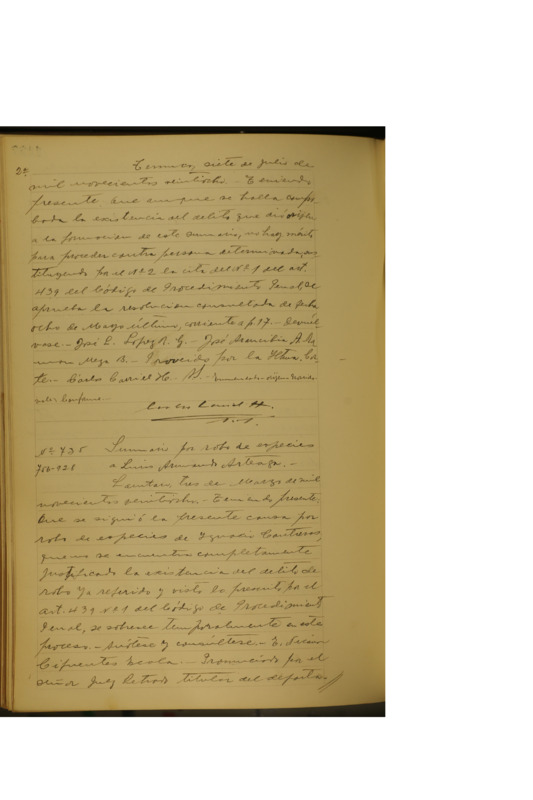 2ª Temuco, siete de Julio de
mil novecientos veintiocho.- Teniendo
presente que aunque se halla compro-
bada la existencia del delito que dió origen
a la formacion de este sumario, no hay mérito
para proceder contra persona determinada,
por el Nº 2 la cita del Nº 1 del art.
439 del Código de Procedimiento Penal se
aprueba la resolucion consultada de fecha
ocho de Marzo último, corriente a f. 17.- Devuél-
vase.- José L. Lopez R. G.- José Arancibia A.
Mega B.- Proveido por la Iltma. Cor-
te.- Carlos Carriel H.
Conforme.-
Carlos Carriel H.
Nº 735 Sumario por robo de especies
a Luis Armando Arteaga.-
Lautaro, tres de Marzo de mil
novecientos veintiocho.- Teniendo presente:
Que se siguió la presente causa por
robo de especies de Ignacio Contreras,
que no se encuentra completamente
justificado la existencia del delito de
robo ya referido y visto lo prescrito por el
art. 439 Nº 1 del Código de Procedimiento
Penal, se sobresee temporalmente en este
proceso.- Anótese y consúltese.- E.
Cifuentes .- Pronunciado por el
señor Juez Letrado titular del departa-